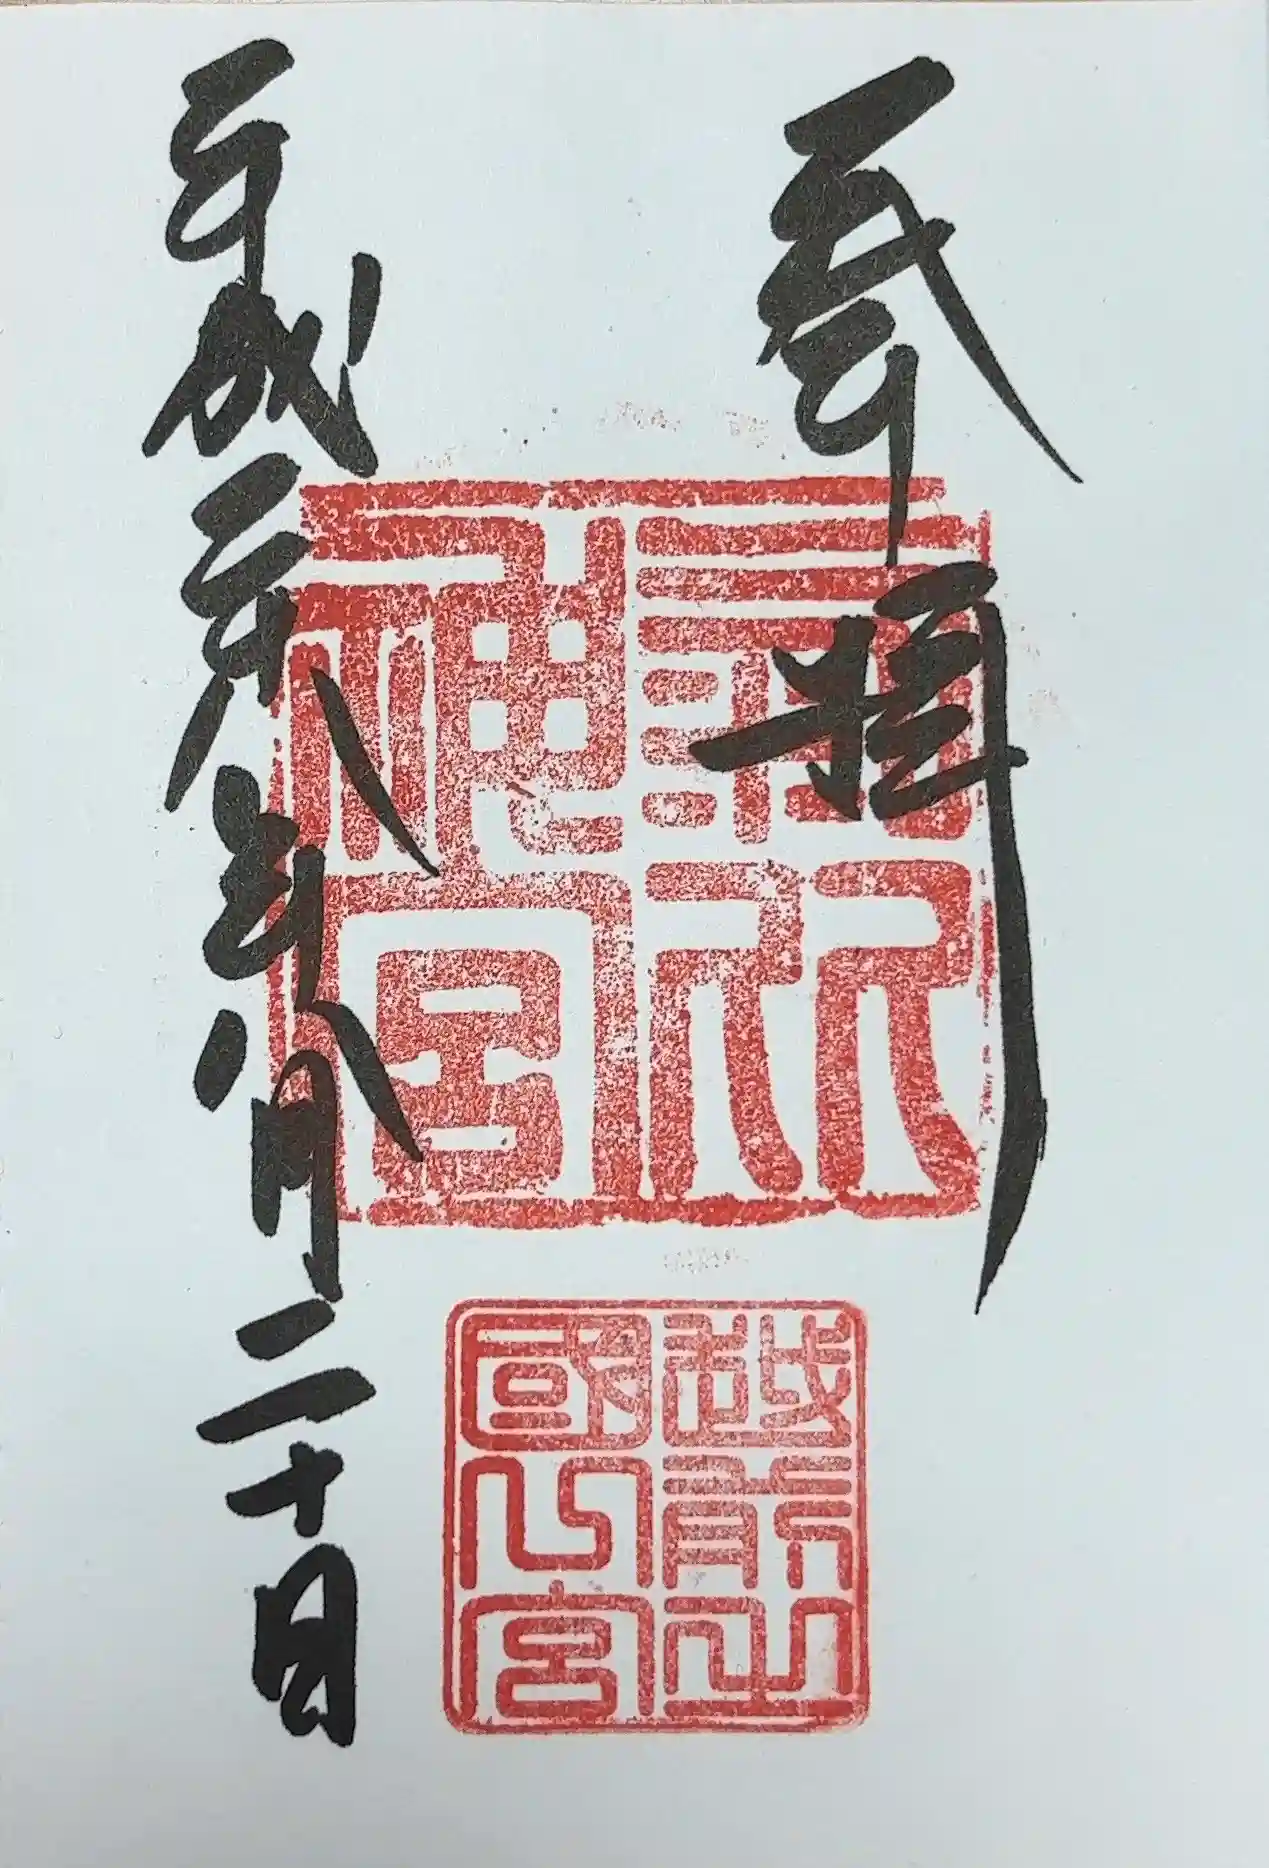 奉拝
氣比
神宮
越前之
國一宮
平成二十八年八月二十日